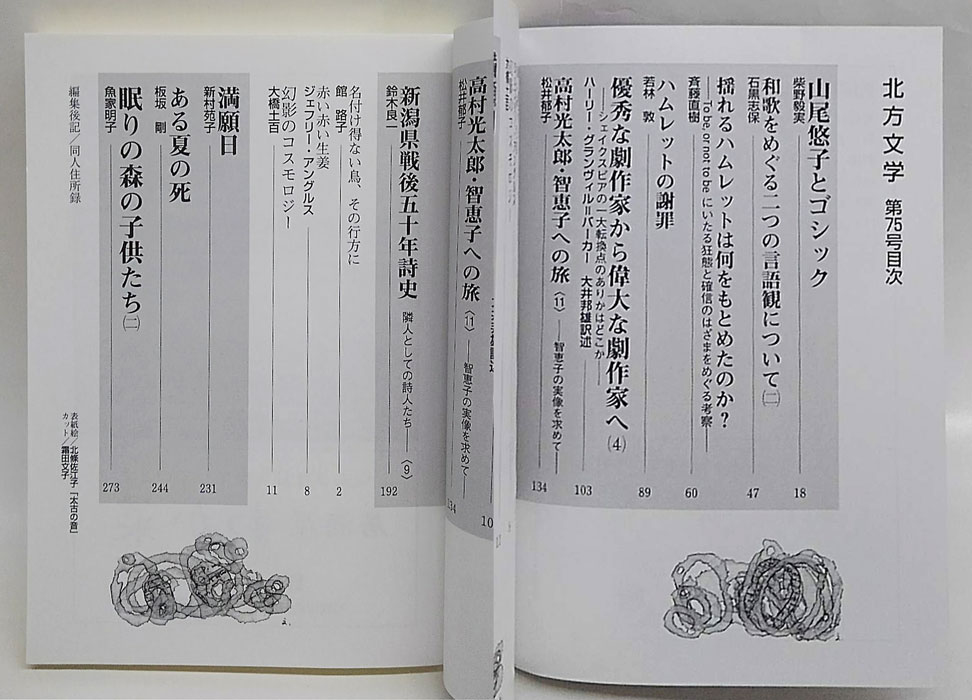 北方文学 第75号目次
山尾悠子とゴシック
柴野毅実 18
和歌をめぐる二つの言語観について㈡
石黒志保 47
揺れるハムレットは何をもとめたのか？
――To be, or not to be にいたる狂態と確信のはざまをめぐる考察――
斎藤直樹 60
ハムレットの謝罪
若林 敦 89
優秀な劇作家から偉大な劇作家へ⑷
――シェイクスピアの一大転換点のありかはどこか――
ハーリー・グランヴィル＝バーカー 大井邦雄訳述 103
高村光太郎・智恵子への旅〈11〉――智恵子の実像を求めて――
松井郁子 134
高村光太郎・智恵子への旅〈11〉――智恵子の実像を求めて――
松井郁子 134
10
新潟県戦後五十年詩史 隣人としての詩人たち――〈9〉
鈴木良一 192
名付け得ない鳥、その行方に
館 路子 2
赤い赤い生姜
ジェフリー・アングルス 8
幻影のコスモロジー
大橋土百 11
満願日
新村苑子 231
ある夏の死
板坂 剛 244
眠りの森の子供たち㈡
魚家明子 273
編集後記／同人住所録
表紙絵／北條佐江子「太古の音」
カット／霜田文子